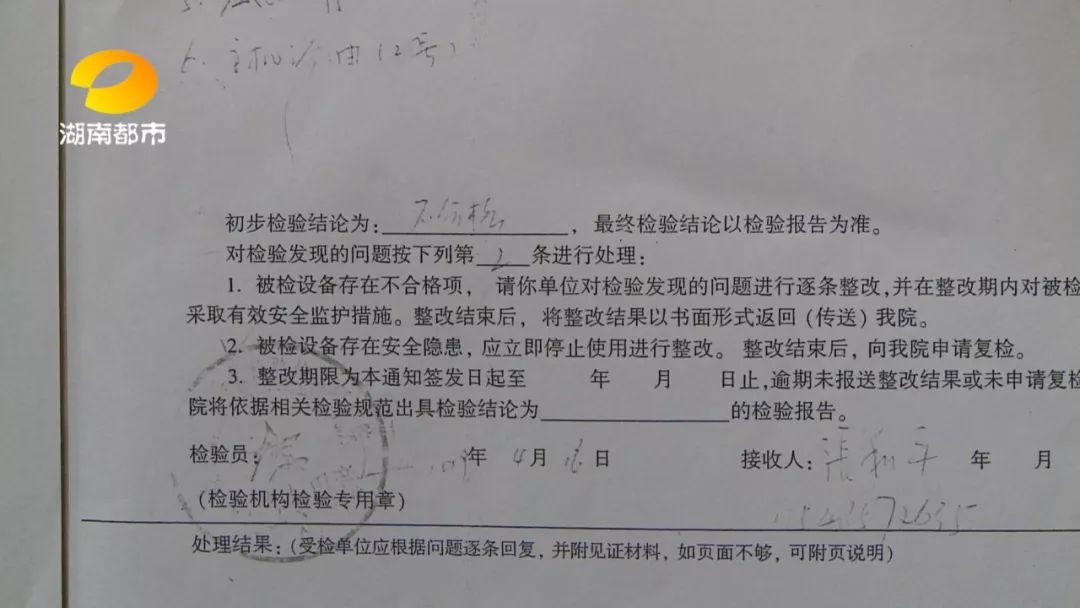 6. 主机渗油（2号）
湖南都市
初步检验结论为：不合格，最终检验结论以检验报告为准。
对检验发现的问题按下列第2条进行处理：
1. 被检设备存在不合格项， 请你单位对检验发现的问题进行逐条整改，并在整改期内对被检
采取有效安全监护措施。整改结束后，将整改结果以书面形式返回（传送）我院。
2. 被检设备存在安全隐患，应立即停止使用进行整改。整改结束后，向我院申请复检。
3. 整改期限为本通知签发日起至 年 月 日止，逾期未报送整改结果或未申请复检
院将依据相关检验规范出具检验结论为 的检验报告。
检验员： 年 4月 日 接收人： 年 月
（检验机构检验专用章）
处理结果：（受检单位应根据问题逐条回复，并附见证材料，如页面不够，可附页说明）